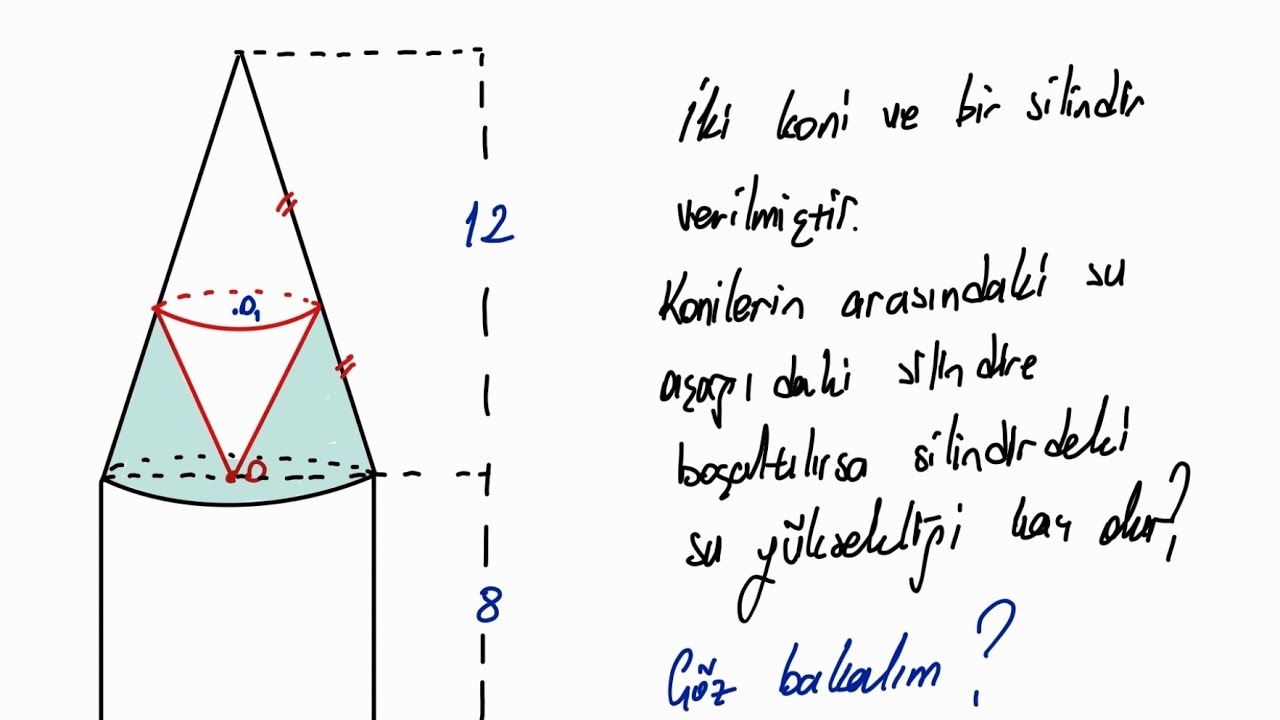 İki koni ve bir silindir
verilmiştir.
12
.O₁
Konilerin arasındaki su
aşağıdaki silindire
boşaltılırsa silindirdeki
O
su yüksekliği kaç olur?
8
Çöz bakalım?